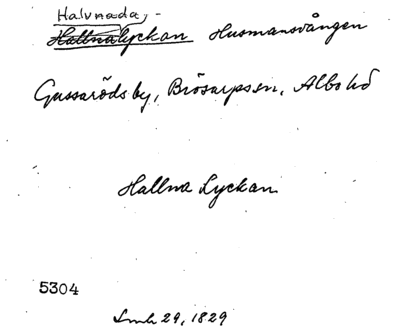 Halvnada-
Hallnalyckan Husmansvången
Gussaröds by, Brösarps sn, Albo hd
Hallna Lyckan
5304
Lmh 29, 1829